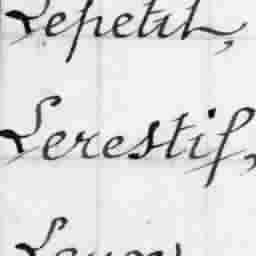 Lepetit,
Lerestif,